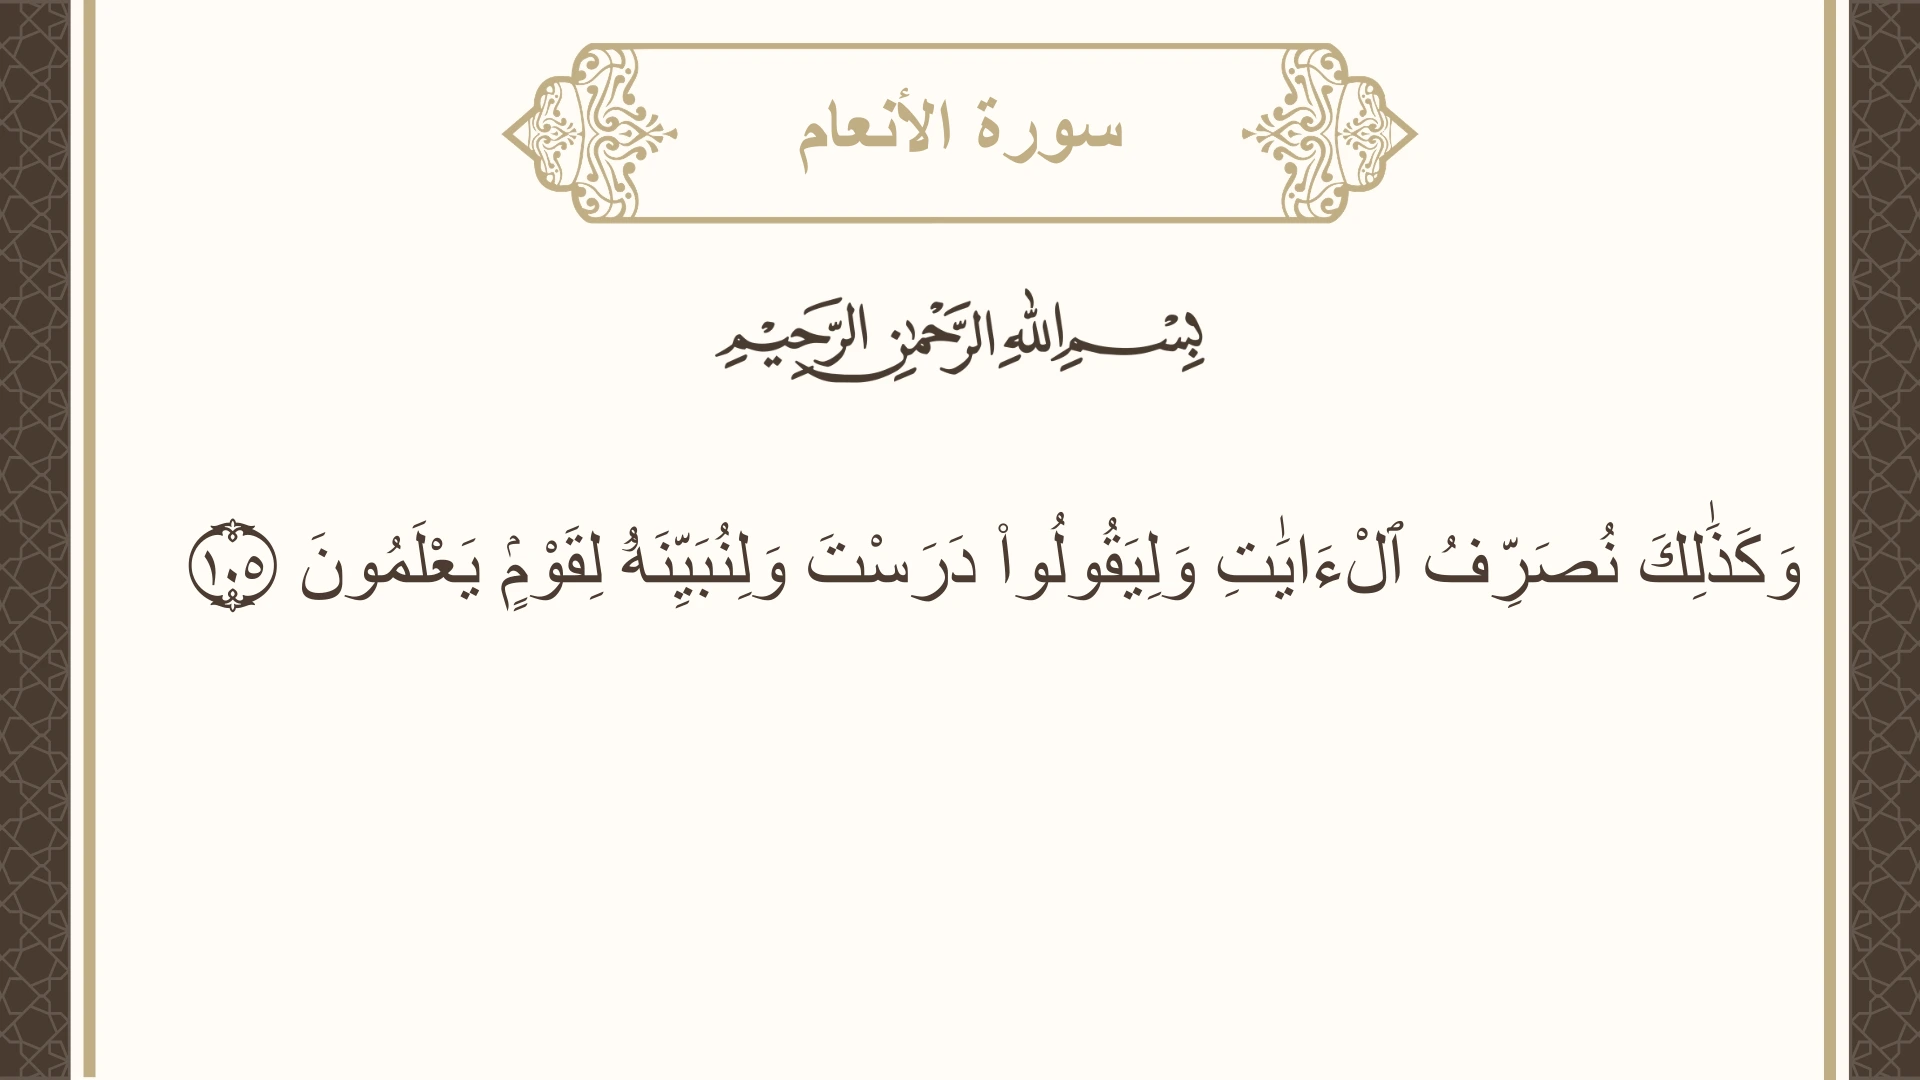 سورة الأنعام
بِسْمِ اللهِ الرَّحْمٰنِ الرَّحِيْمِ
وَكَذَٰلِكَ نُصَرِّفُ ٱلْءَايَٰتِ وَلِيَقُولُوا۟ دَرَسْتَ وَلِنُبَيِّنَهُۥ لِقَوْمٍۢ يَعْلَمُونَ ١٠٥